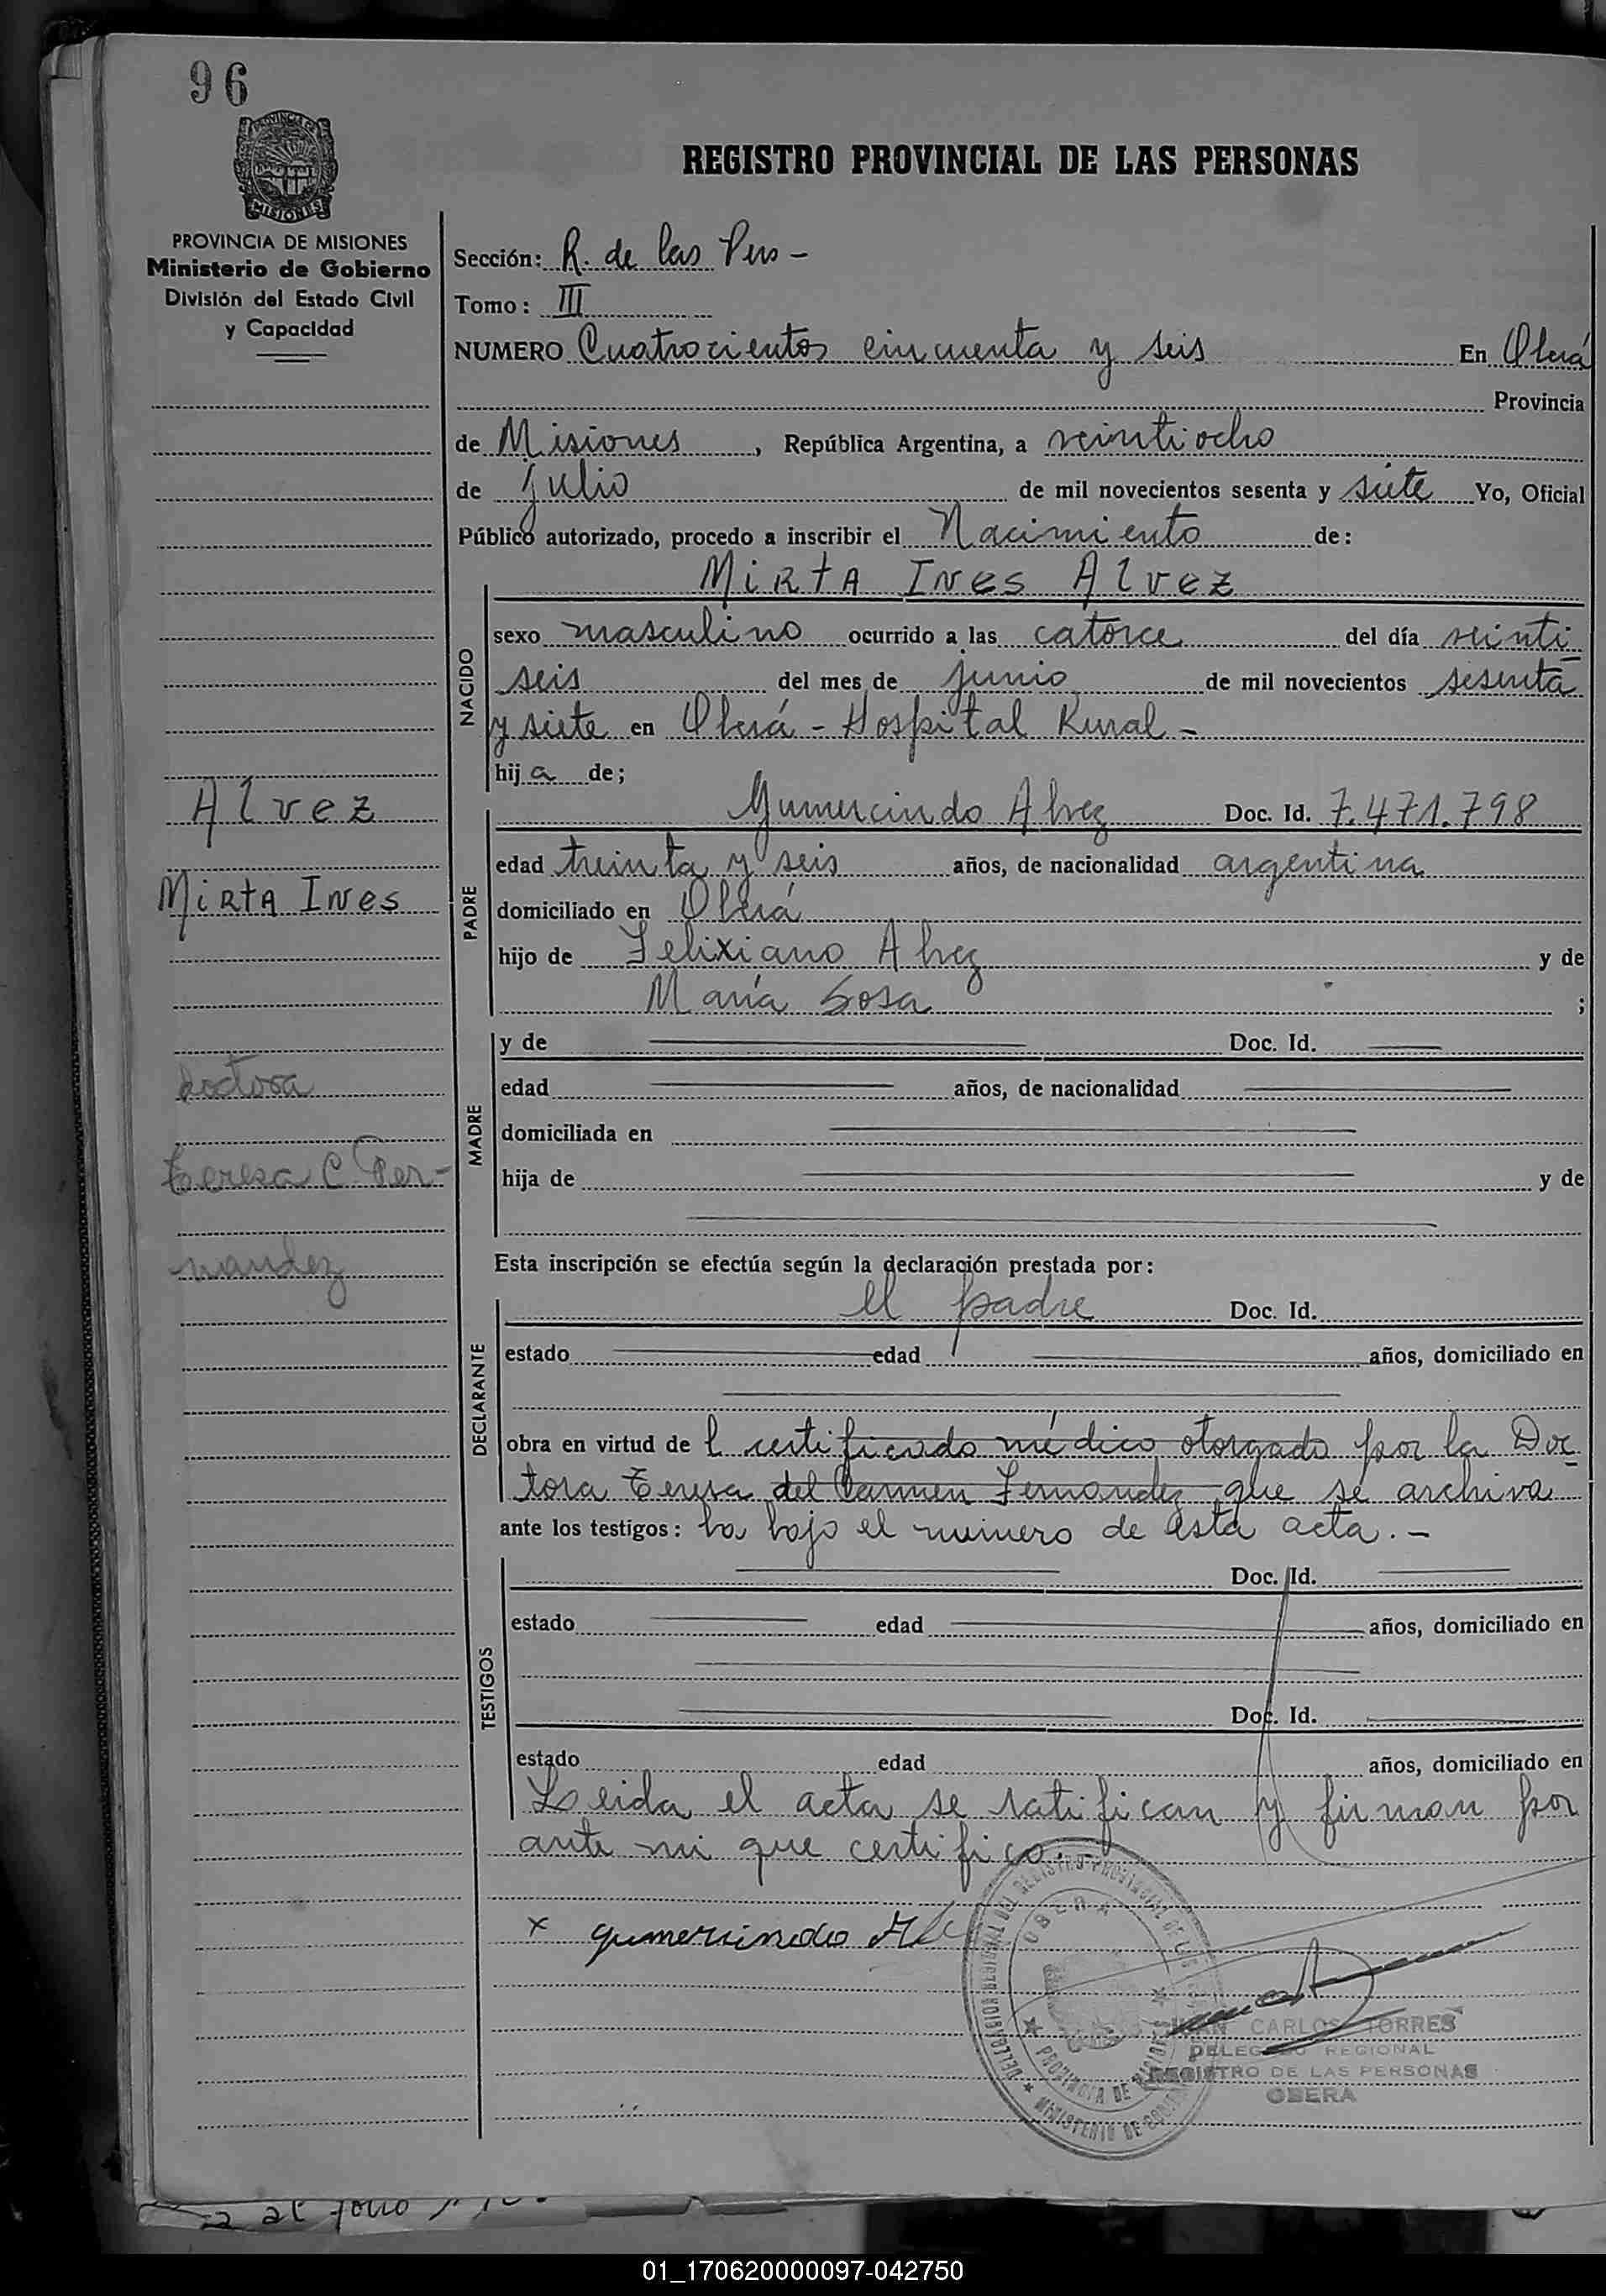 96
PROVINCIA DE
MISIONES
PROVINCIA DE MISIONES
Ministerio de Gobierno
División del Estado Civil
y Capacidad
REGISTRO PROVINCIAL DE LAS PERSONAS
Sección: R. de las Pers -
Tomo: III
NUMERO Cuatrocientos cincuenta y seis En Oberá
Provincia
de Misiones, República Argentina, a veintiocho
de julio de mil novecientos sesenta y siete Yo, Oficial
Público autorizado, procedo a inscribir el Nacimiento de:
Mirta Ines Alvez
NACIDO
sexo masculino ocurrido a las catorce del día veinti
seis del mes de junio de mil novecientos sesenta
y siete en Oberá - Hospital Rural -
hija de;
Alvez
Mirta Ines
PADRE
Gumercindo Alvez Doc. Id. 7.471.798
edad treinta y seis años, de nacionalidad argentina
domiciliado en Oberá
hijo de Felixiano Alvez y de
María Sosa ;
doctora
Teresa C. Fer-
nandez
MADRE
y de Doc. Id.
edad años, de nacionalidad
domiciliada en
hija de y de
Esta inscripción se efectúa según la declaración prestada por:
DECLARANTE
el padre Doc. Id.
estado edad años, domiciliado en
obra en virtud de l certificado médico otorgado por la Doc-
tora Teresa del Carmen Fernandez que se archiva
ante los testigos: ba bajo el número de esta acta. -
TESTIGOS
Doc. Id.
estado edad años, domiciliado en
Doc. Id.
estado edad años, domiciliado en
Leida el acta se ratifican y firman por
ante mi que certifico. -
x gumercindo
DELEGACION REGIONAL DEL REGISTRO PROVINCIAL DE LAS
OBERA
PROVINCIA DE MISIONES
MINISTERIO DE
JUAN CARLOS TORRES
DELEGADO REGIONAL
REGISTRO DE LAS PERSONAS
OBERA
al folio
01_170620000097-042750